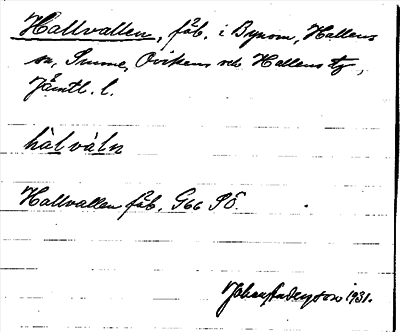 Hallvallen, fäb. i Byrom, Hallens
sn, Sunne, Ovikens och Hallens tg,
Jämtl. l.
hàlvàln
Hallvallen fäb. G66 SÖ
Johan Anderson 1931.